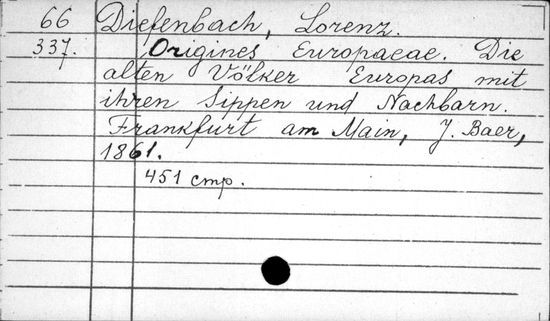 66 Diefenbach, Lorenz.
337. Origines Europaeae. Die
alten Völker Europas mit
ihren Sippen und Nachbarn.
Frankfurt am Main, J. Baer,
1861.
451 cmp.